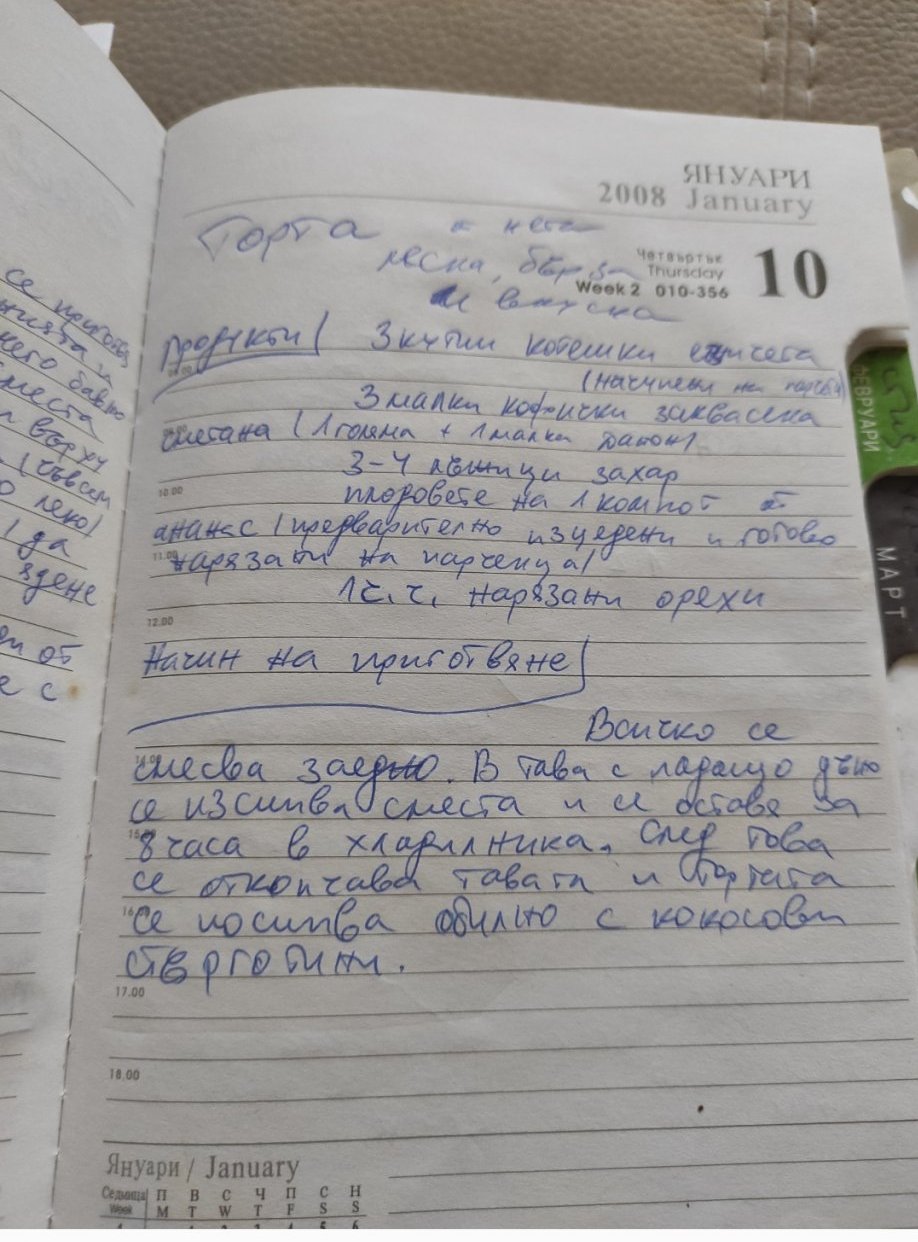 се приготвя
него бавно
сместа
върху
/съвсем
леко/
/да
ядене
от
е с
ЯНУАРИ
2008 January
Торта
лесна, бърза
и вкусна
Четвъртък
Thursday
10
Week 2 010-356
Продукти/ 3 кутии котешки езичета
(начупени на парчета)
3 малки кофички заквасена
сметана (1 голяма + 1 малка Данон)
3-4 лъжици захар
10.00
плодовете на 1 компот от
ананас /предварително изцедени и готово
11.00
нарязани на парченца/
1 ч.ч. нарязани орехи
12.00
Начин на приготвяне/
Всичко се
смесва заедно. В тава с падащо дъно
се изсипва сместа и се оставя за
8 часа в хладилника. След това
се откопчава тавата и тортата
се посипва обилно с кокосови
стърготини.
17.00
18.00
Януари / January
Седмица П В С Ч П С Н
Week M T W T F S S
ФЕВРУАРИ
МАРТ